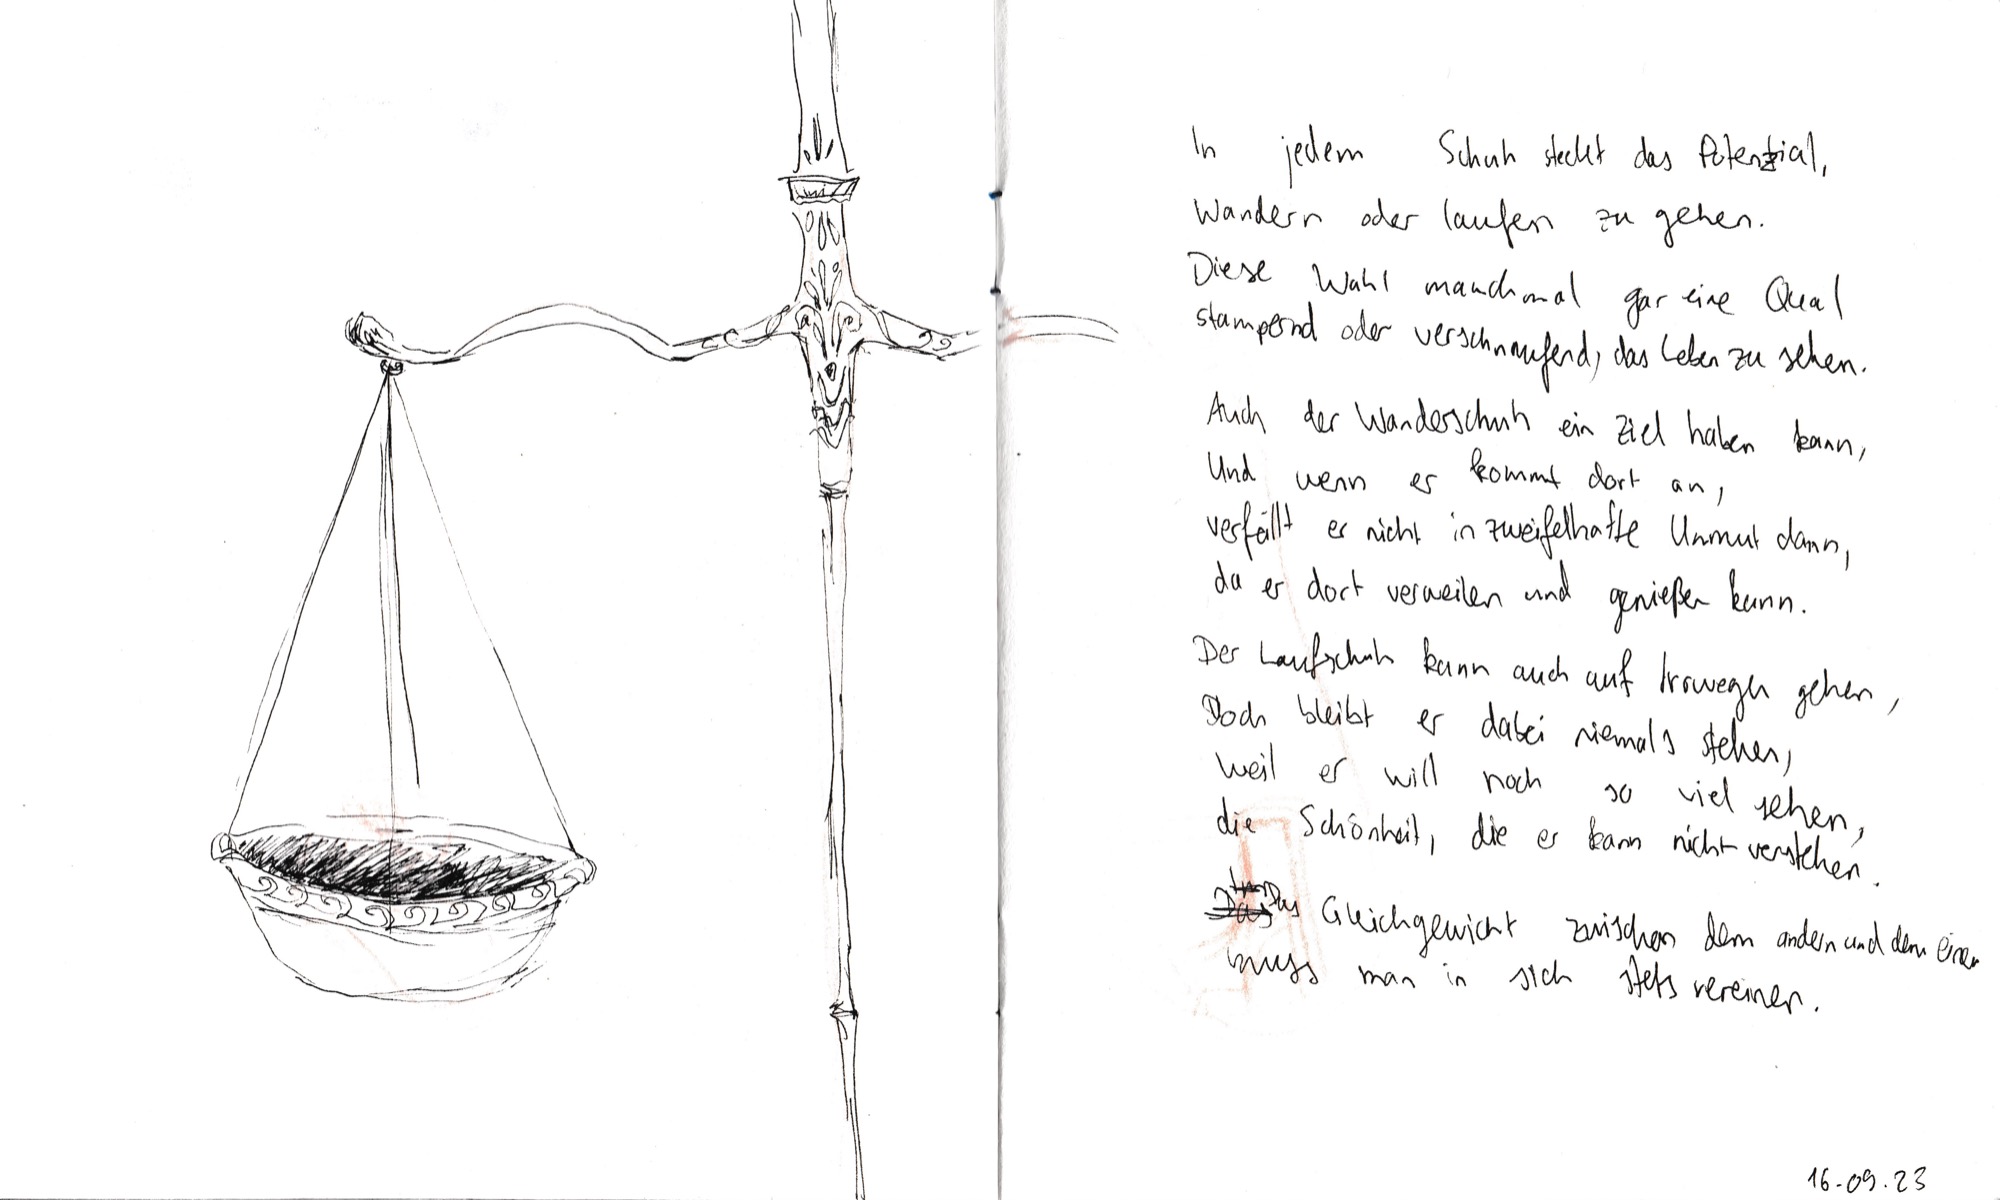 In jedem Schuh steckt das Potenzial,
Wandern oder laufen zu gehen.
Diese Wahl manchmal gar eine Qual
stampernd oder verschnaufend, das Leben zu sehen.
Auch der Wanderschuh ein Ziel haben kann,
Und wenn er kommt dort an,
verfällt er nicht in zweifelhafte Unmut dann,
da er dort verweilen und genießen kann.
Der Laufschuh kann auch auf Irrwegen gehen,
Doch bleibt er dabei niemals stehen,
weil er will noch so viel sehen,
die Schönheit, die er kann nicht verstehen.
Das Gleichgewicht zwischen dem andern und dem einen
muss man in sich stets vereinen.
16.09.23